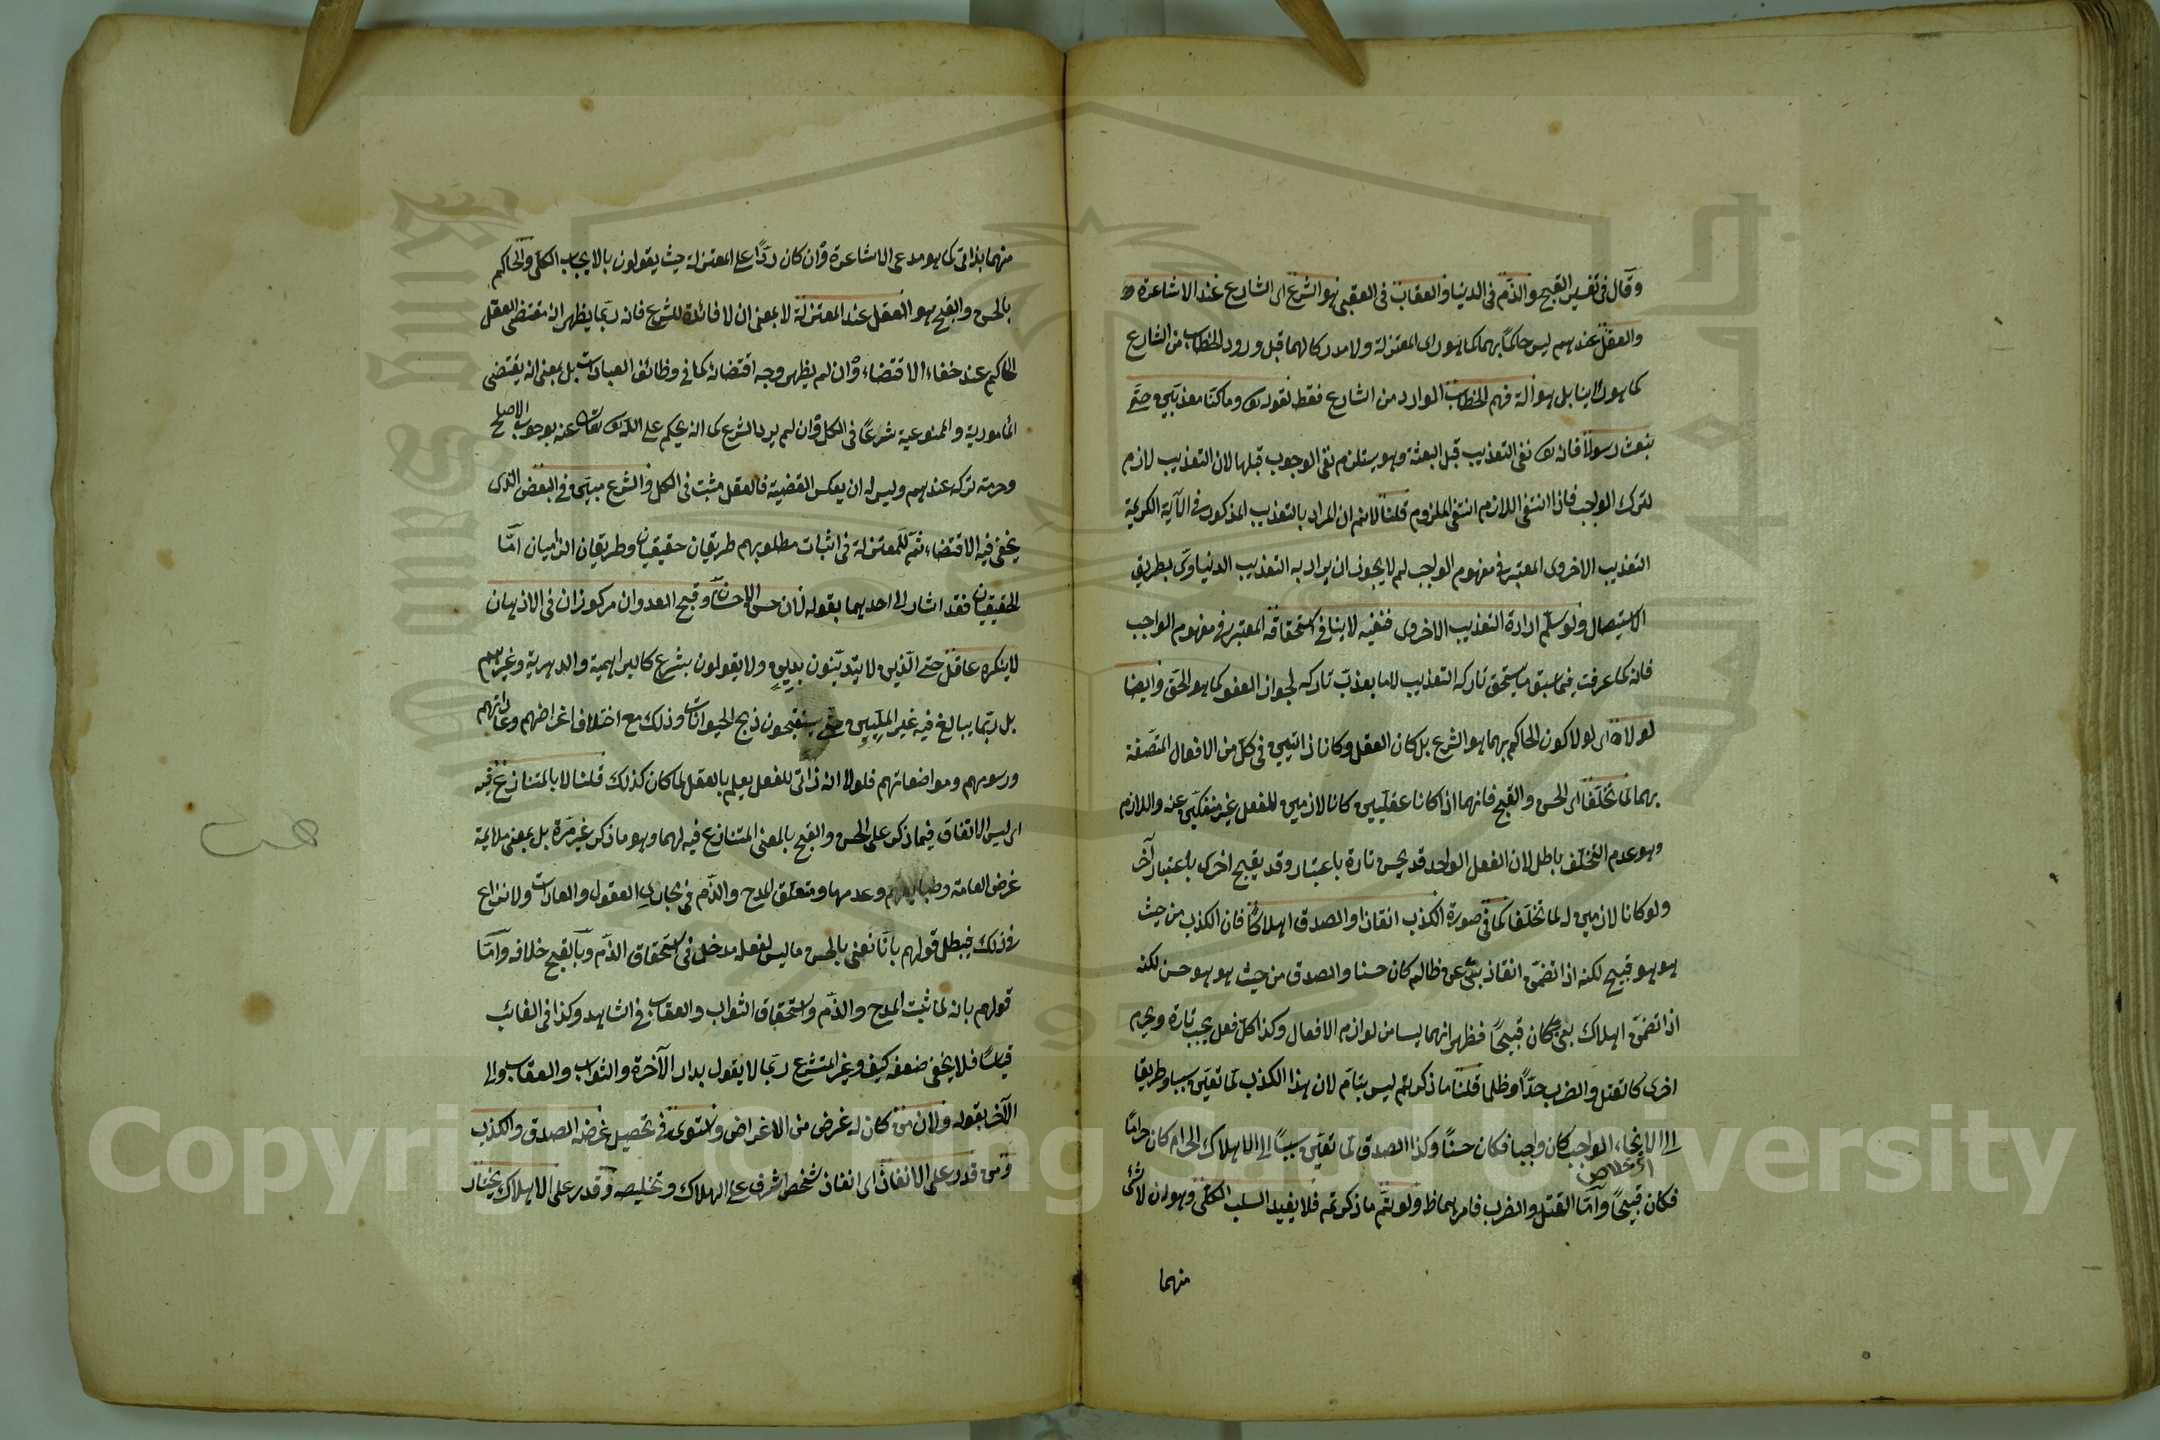 وقال في تفسير القبيح والذم في الدنيا والعقاب في العقبى هو الشرع اى الشارع عند الاشاعرة
والعقل عندهم ليس حاكما بهما كما هو راى المعتزلة ولا مدركا لهما قبل ورود الخطاب من الشارع
كما هو راينا بل هو آلة فهم الخطاب الوارد من الشارع فقط لقوله تع وما كنا معذبين حتى
نبعث رسولا فانه تع نفى التعذيب قبل البعثة وهو يستلزم نفى الوجوب قبلها لان التعذيب لازم
لترك الواجب فاذا انتفى اللازم انتفى الملزوم قلنا لانم ان المراد بالتعذيب المذكور في الآية الكريمة
التعذيب الاخروى المعتبر في مفهوم الواجب لم لا يجوز ان يراد به التعذيب الدنياوى بطريق
الاستيصال ولو سلم ارادة التعذيب الاخروى فنفيه لا ينافى استحقاقه المعتبر في مفهوم الواجب
فانه كما عرفت فيما سبق ما يستحق تاركه التعذيب لا ما يعذب تاركه لجواز العفو كما هو الحق وايضا
لولاه اى لولا كون الحاكم بهما هو الشرع بل كان العقل وكانا ذاتيين في كل من الافعال المتصفة
بهما لما تخلفا اى الحسن والقبح فانهما اذا كانا عقليين كانا لازمين للفعل غير منفكين عنه واللازم
وهو عدم التخلف باطل لان الفعل الواحد قد يحسن تارة باعتبار وقد يقبح اخرى باعتبار آخر
ولو كانا لازمين له لما تخلفا كما في صورة الكذب انقاذا والصدق اهلاكا فان الكذب من حيث
هو هو قبيح لكنه اذا تضمن انقاذ نبى عن ظالم كان حسنا والصدق من حيث هو هو حسن لكنه
اذا تضمن اهلاك نبى كان قبيحا فظهر انهما ليسا من لوازم الافعال وكذا كل فعل يجب تارة ويحرم
اخرى كالقتل والضرب حدا وظلما قلنا ما ذكرتم ليس بتام لان هذا الكذب لما تعين سببا وطريقا
الى الانجاء الواجب كان واجبا فكان حسنا وكذا الصدق لما تعين سببا الى الاهلاك الحرام كان حراما
فكان قبيحا واما القتل والضرب فامرهما ظ ولو تم ما ذكرتم فلا يفيد السلب الكلى وهو ان لا شئ
منهما
منهما بذاتى كما هو مدعى الاشاعرة وان كان ردا على المعتزلة حيث يقولون بالايجاب الكلى والحاكم
بالحسن والقبح هو العقل عند المعتزلة لا بمعنى ان لا فائدة للشرع فانه ربما يظهر ان مقتضى العقل
الحاكم عند خفاء الاقتضاء وان لم يظهر وجه اقتضائه كما في وظائف العبادات بل بمعنى انه يقتضى
المأمورية والممنوعية شرعا في الكل وان لم يرد الشرع كما انه يحكم على الله تع عنه بوجوب الاصلح
وحرمة تركه عندهم وليس له ان يعكس القضية فالعقل مثبت في الكل والشرع مبين في البعض الذى
يخفى فيه الاقتضاء ثم للمعتزلة في اثبات مطلوبهم طريقان حقيقيان وطريقان الزاميان اما
الحقيقيان فقد اشار الى احدهما بقوله لان حسن الاحسان وقبح العدوان مركوزان في الاذهان
لا ينكره عاقل حتى الذين لا يتدينون بدين ولا يقولون بشرع كالبراهمة والدهرية وغيرهم
بل ربما يبالغ فيه غير المليين حتى يستقبحون ذبح الحيوانات وذلك مع اختلاف اغراضهم وعاداتهم
ورسومهم ومواضعاتهم فلولا انه ذاتى للفعل يعلم بالعقل لما كان كذلك قلنا لا بالمتنازع فيه
اى ليس الاتفاق فيما ذكر على الحسن والقبح بالمعنى المتنازع فيه لهما وهو ما ذكر غير مرة بل بمعنى ملايمة
غرض العامة وطبايعهم وعدمها ومتعلق المدح والذم في مجارى العقول والعادات ولا نزاع
في ذلك فبطل قولهم بانا نعنى بالحسن ما ليس لفعله مدخل في استحقاق الذم وبالقبح خلافه واما
قولهم بانه لما ثبت المدح والذم واستحقاق الثواب والعقاب في الشاهد وكذا في الغائب
قياسا فلا يخفى ضعفه كيف وغير المتشرع ربما لا يقول بدار الآخرة والثواب والعقاب والى
الآخر بقوله ولان من كان له غرض من الاغراض واستوى في تحصيل غرضه الصدق والكذب
ومن قدر على الانقاذ اى انقاذ شخص اشرف على الهلاك وتخليصه وقدر على الاهلاك يختار
Copyright © King Saud University